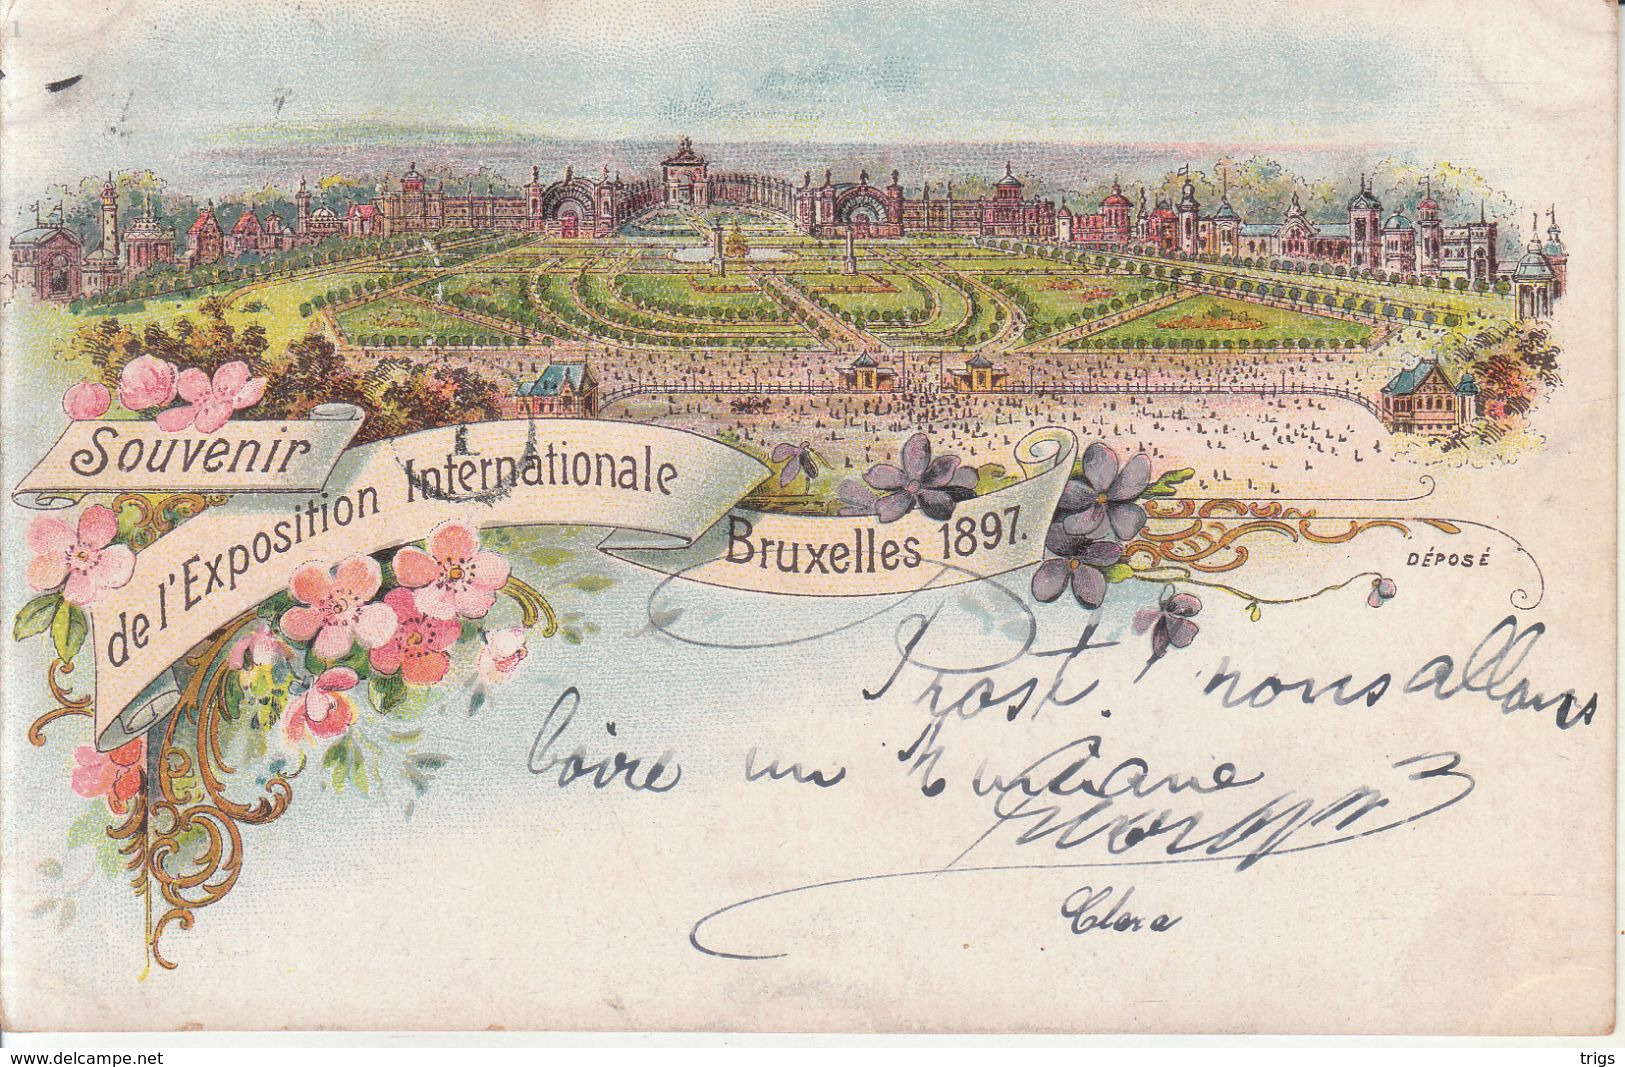 Souvenir
de l'Exposition Internationale
Bruxelles 1897.
DÉPOSÉ
Prost! nous allons
boire un
Clara
www.delcampe.net
trigs